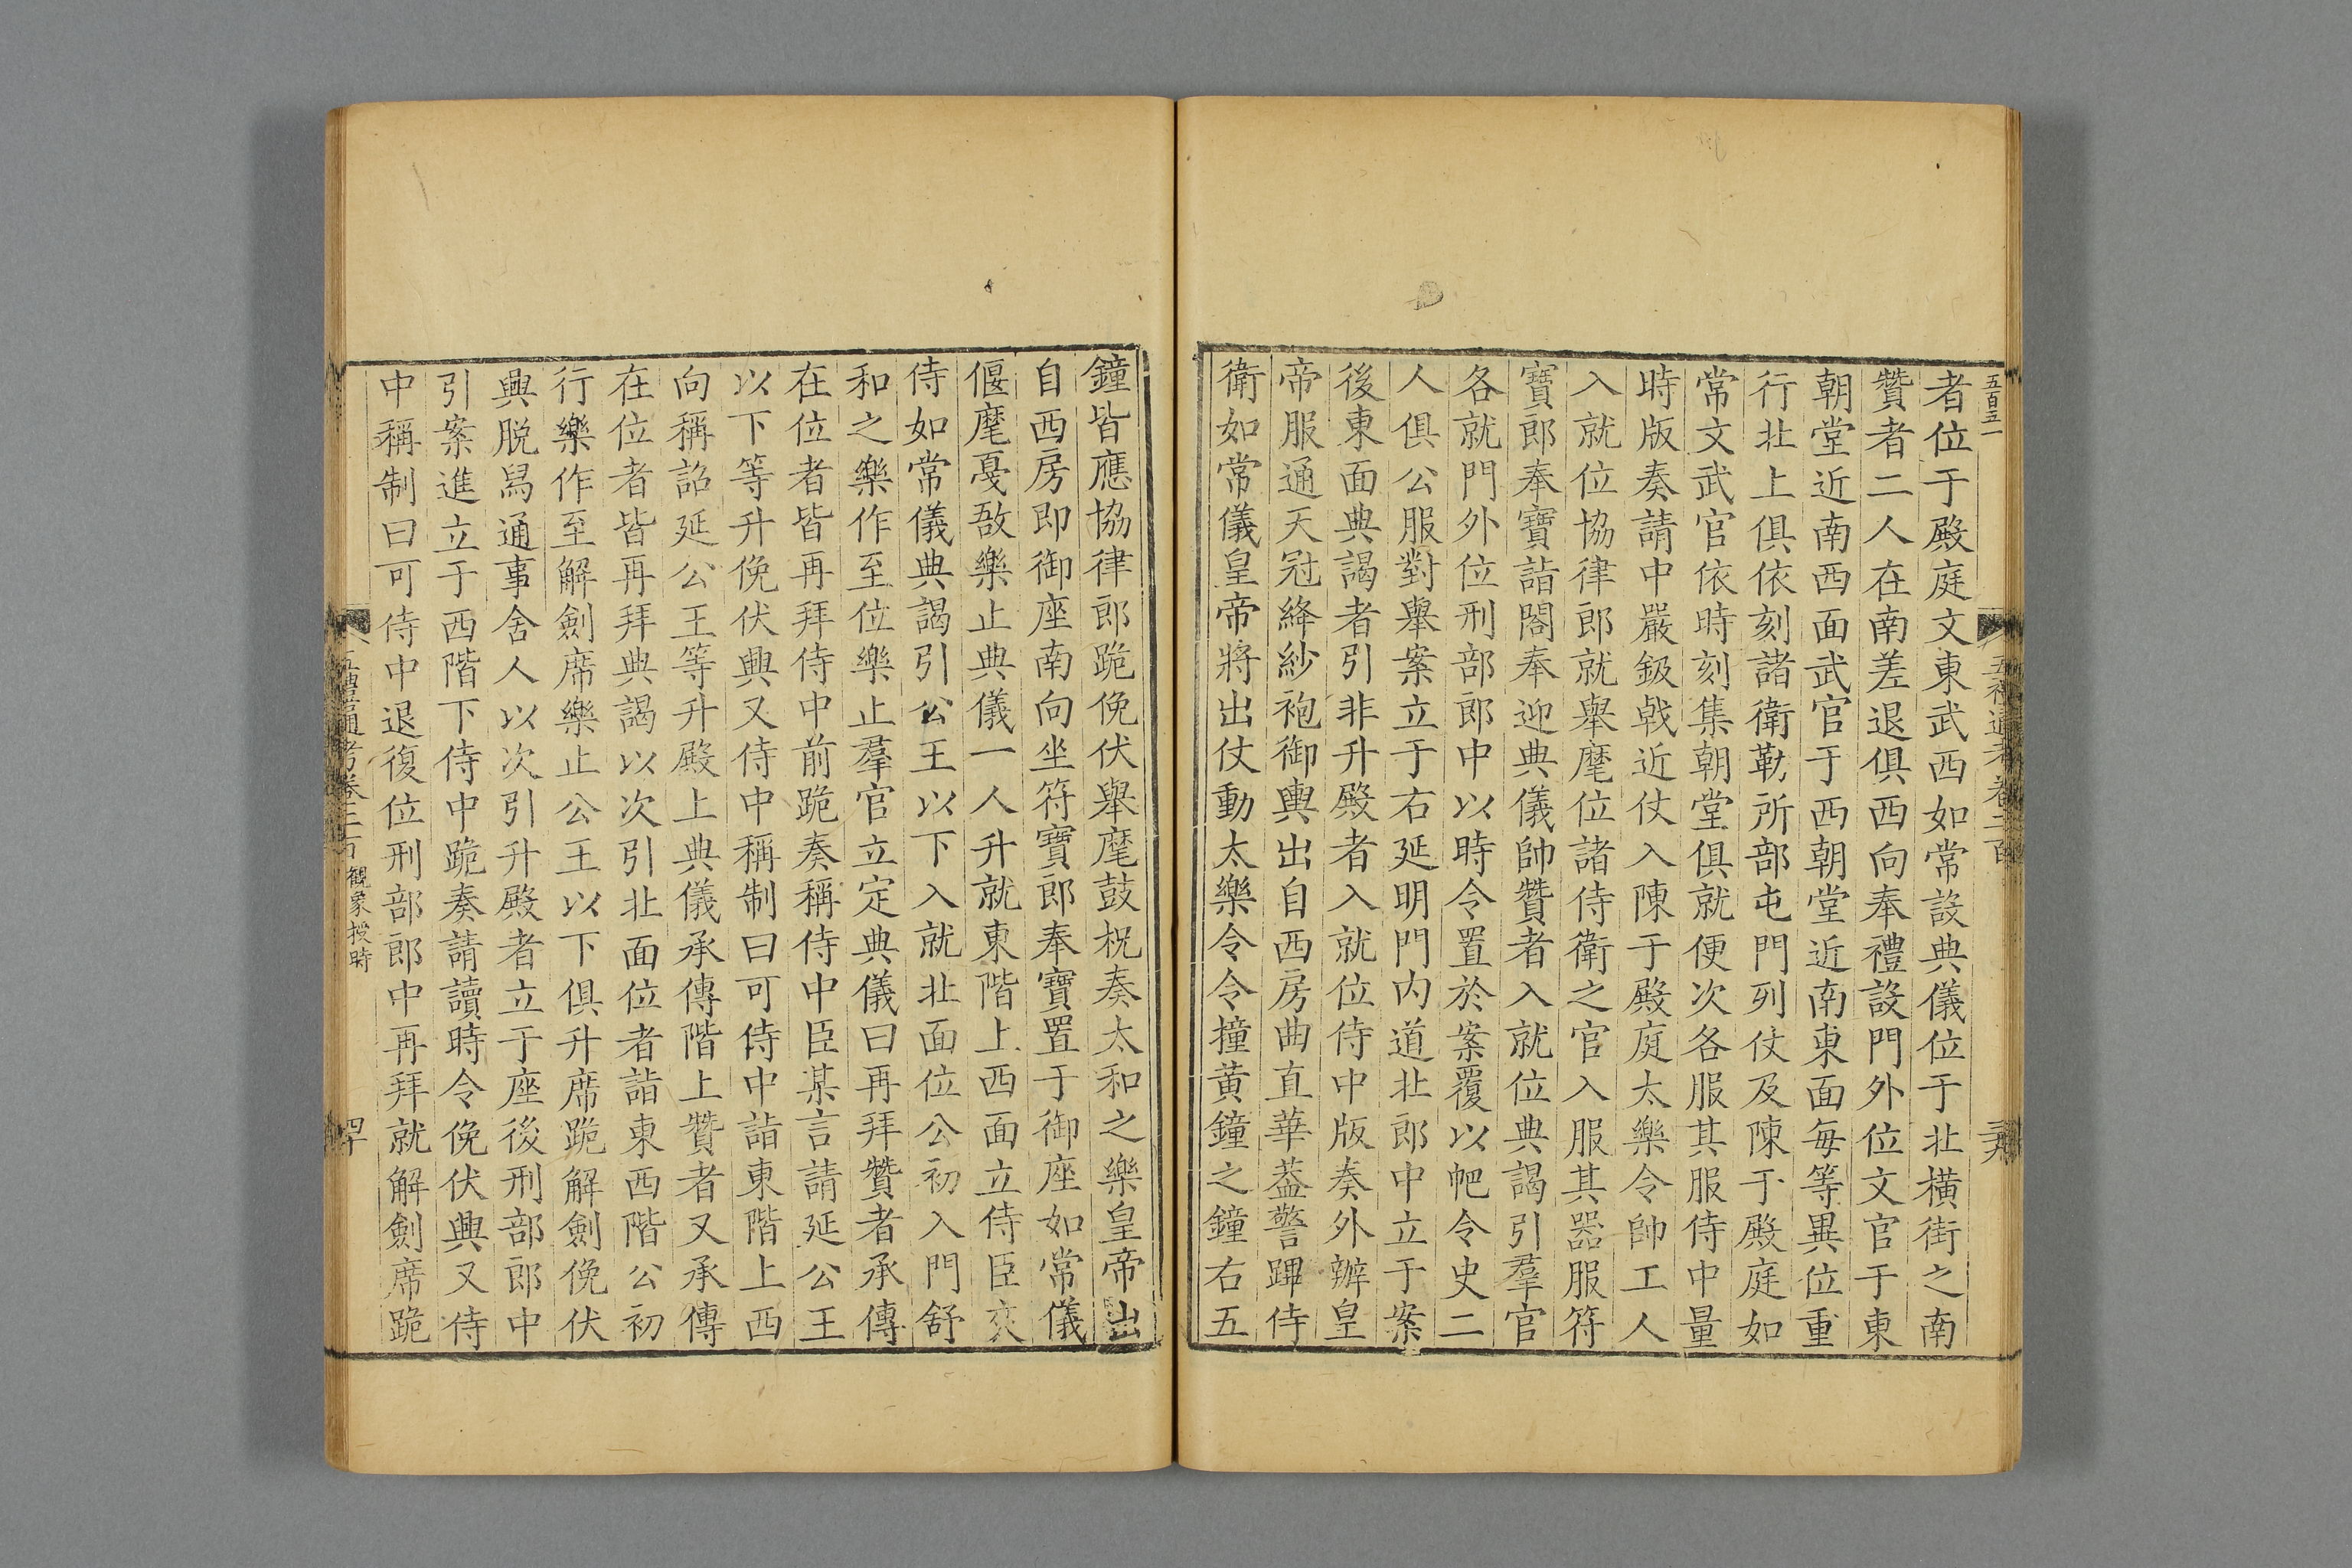 五百五一
者位于殿庭文東武西如常設典儀位于北橫街之南
贊者二人在南差退俱西向奉禮設門外位文官于東
朝堂近南西面武官于西朝堂近南東面每等異位重
行北上俱依刻諸衛勒所部屯門列仗及陳于殿庭如
常文武官依時刻集朝堂俱就便次各服其服侍中量
時版奏請中嚴鈒戟近仗入陳于殿庭太樂令帥工人
入就位協律郎就舉麾位諸侍衛之官入服其器服符
寶郎奉寶詣閤奉迎典儀帥贊者入就位典謁引羣官
各就門外位刑部郎中以時令置於案覆以帊令史二
人俱公服對舉案立于右延明門內道北郎中立于案
後東面典謁者引非升殿者入就位侍中版奏外辦皇
帝服通天冠絳紗袍御輿出自西房曲直華蓋警蹕侍
衛如常儀皇帝將出仗動太樂令令撞黃鐘之鐘右五
五禮通考卷二百
三九
鐘皆應協律郎跪俛伏舉麾鼓柷奏太和之樂皇帝出
自西房即御座南向坐符寶郎奉寶置于御座如常儀
偃麾戞敔樂止典儀一人升就東階上西面立侍臣夾
侍如常儀典謁引公王以下入就北面位公初入門舒
和之樂作至位樂止羣官立定典儀曰再拜贊者承傳
在位者皆再拜侍中前跪奏稱侍中臣某言請延公王
以下等升俛伏興又侍中稱制曰可侍中詣東階上西
向稱詔延公王等升殿上典儀承傳階上贊者又承傳
在位者皆再拜典謁以次引北面位者詣東西階公初
行樂作至解劍席樂止公王以下俱升席跪解劍俛伏
興脫舄通事舍人以次引升殿者立于座後刑部郎中
引案進立于西階下侍中跪奏請讀時令俛伏興又侍
中稱制曰可侍中退復位刑部郎中再拜就解劍席跪
五禮通考卷二百 觀象授時
四十